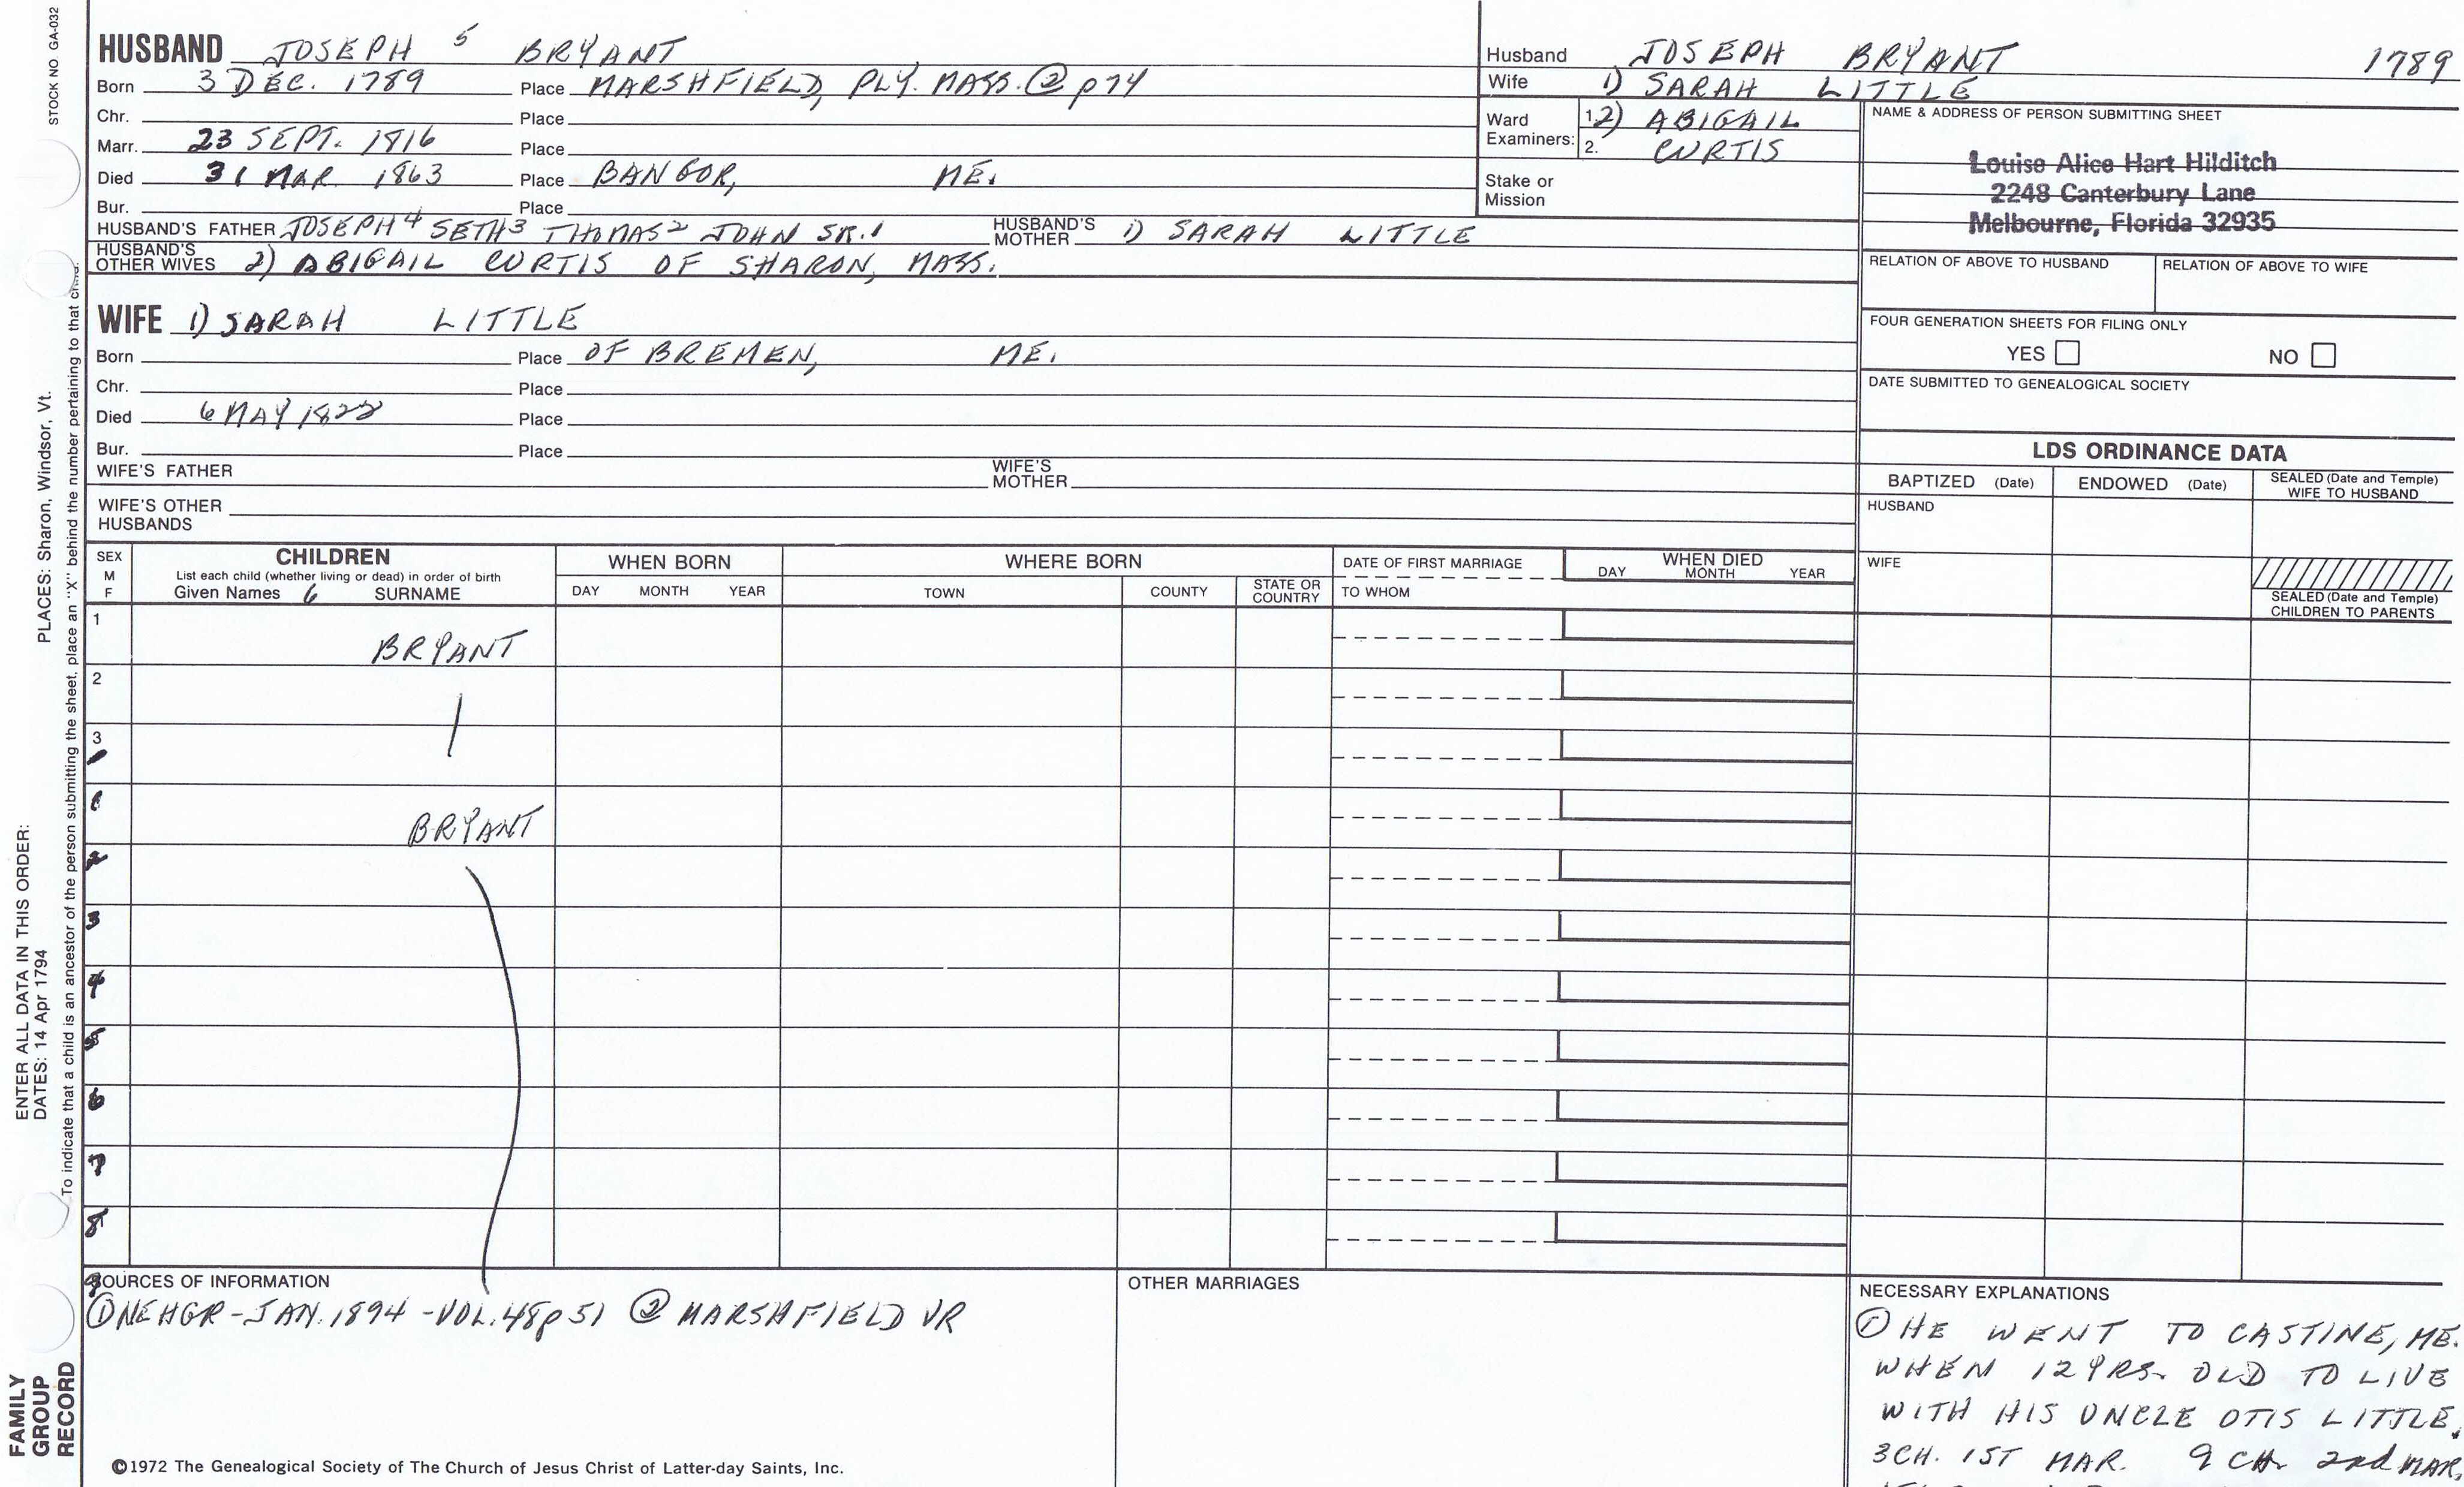 STOCK NO GA-032
HUSBAND JOSEPH 5 BRYANT
Born 3 DEC. 1789 Place MARSHFIELD, PLY. MASS. ② p 74
Chr. Place
Marr. 23 SEPT. 1816 Place
Died 31 MAR. 1863 Place BANGOR, ME.
Bur. Place
HUSBAND'S FATHER JOSEPH 4 SETH 3 THOMAS 2 JOHN SR. 1 HUSBAND'S MOTHER 1) SARAH LITTLE
HUSBAND'S OTHER WIVES 2) ABIGAIL CURTIS OF SHARON, MASS.
Husband JOSEPH BRYANT 1789
Wife 1) SARAH LITTLE
Ward Examiners: 1. 2) ABIGAIL
2. CURTIS
Stake or Mission
NAME & ADDRESS OF PERSON SUBMITTING SHEET
Louise Alice Hart Hilditch
2248 Canterbury Lane
Melbourne, Florida 32935
RELATION OF ABOVE TO HUSBAND RELATION OF ABOVE TO WIFE
FOUR GENERATION SHEETS FOR FILING ONLY
YES NO
DATE SUBMITTED TO GENEALOGICAL SOCIETY
WIFE 1) SARAH LITTLE
Born Place OF BREMEN, ME.
Chr. Place
Died 6 MAY 1828 Place
Bur. Place
WIFE'S FATHER WIFE'S MOTHER
WIFE'S OTHER HUSBANDS
LDS ORDINANCE DATA
BAPTIZED (Date) ENDOWED (Date) SEALED (Date and Temple) WIFE TO HUSBAND
HUSBAND
WIFE
SEALED (Date and Temple) CHILDREN TO PARENTS
SEX M F
CHILDREN
List each child (whether living or dead) in order of birth
Given Names 6 SURNAME
WHEN BORN
DAY MONTH YEAR
WHERE BORN
TOWN COUNTY STATE OR COUNTRY
DATE OF FIRST MARRIAGE
TO WHOM
WHEN DIED
DAY MONTH YEAR
1 BRYANT
2
3
1 BRYANT
2
3
4
5
6
7
8
9
SOURCES OF INFORMATION
① NEHGR - JAN. 1894 - VOL. 48 p 51 ② MARSHFIELD VR
OTHER MARRIAGES
NECESSARY EXPLANATIONS
① HE WENT TO CASTINE, ME.
WHEN 12 YRS. OLD TO LIVE
WITH HIS UNCLE OTIS LITTLE.
3 CH. 1ST MAR. 9 CH. 2nd MAR.
©1972 The Genealogical Society of The Church of Jesus Christ of Latter-day Saints, Inc.
ENTER ALL DATA IN THIS ORDER:
DATES: 14 Apr 1794 PLACES: Sharon, Windsor, Vt.
To indicate that a child is an ancestor of the person submitting the sheet, place an "X" behind the number pertaining to that child.
FAMILY
GROUP
RECORD